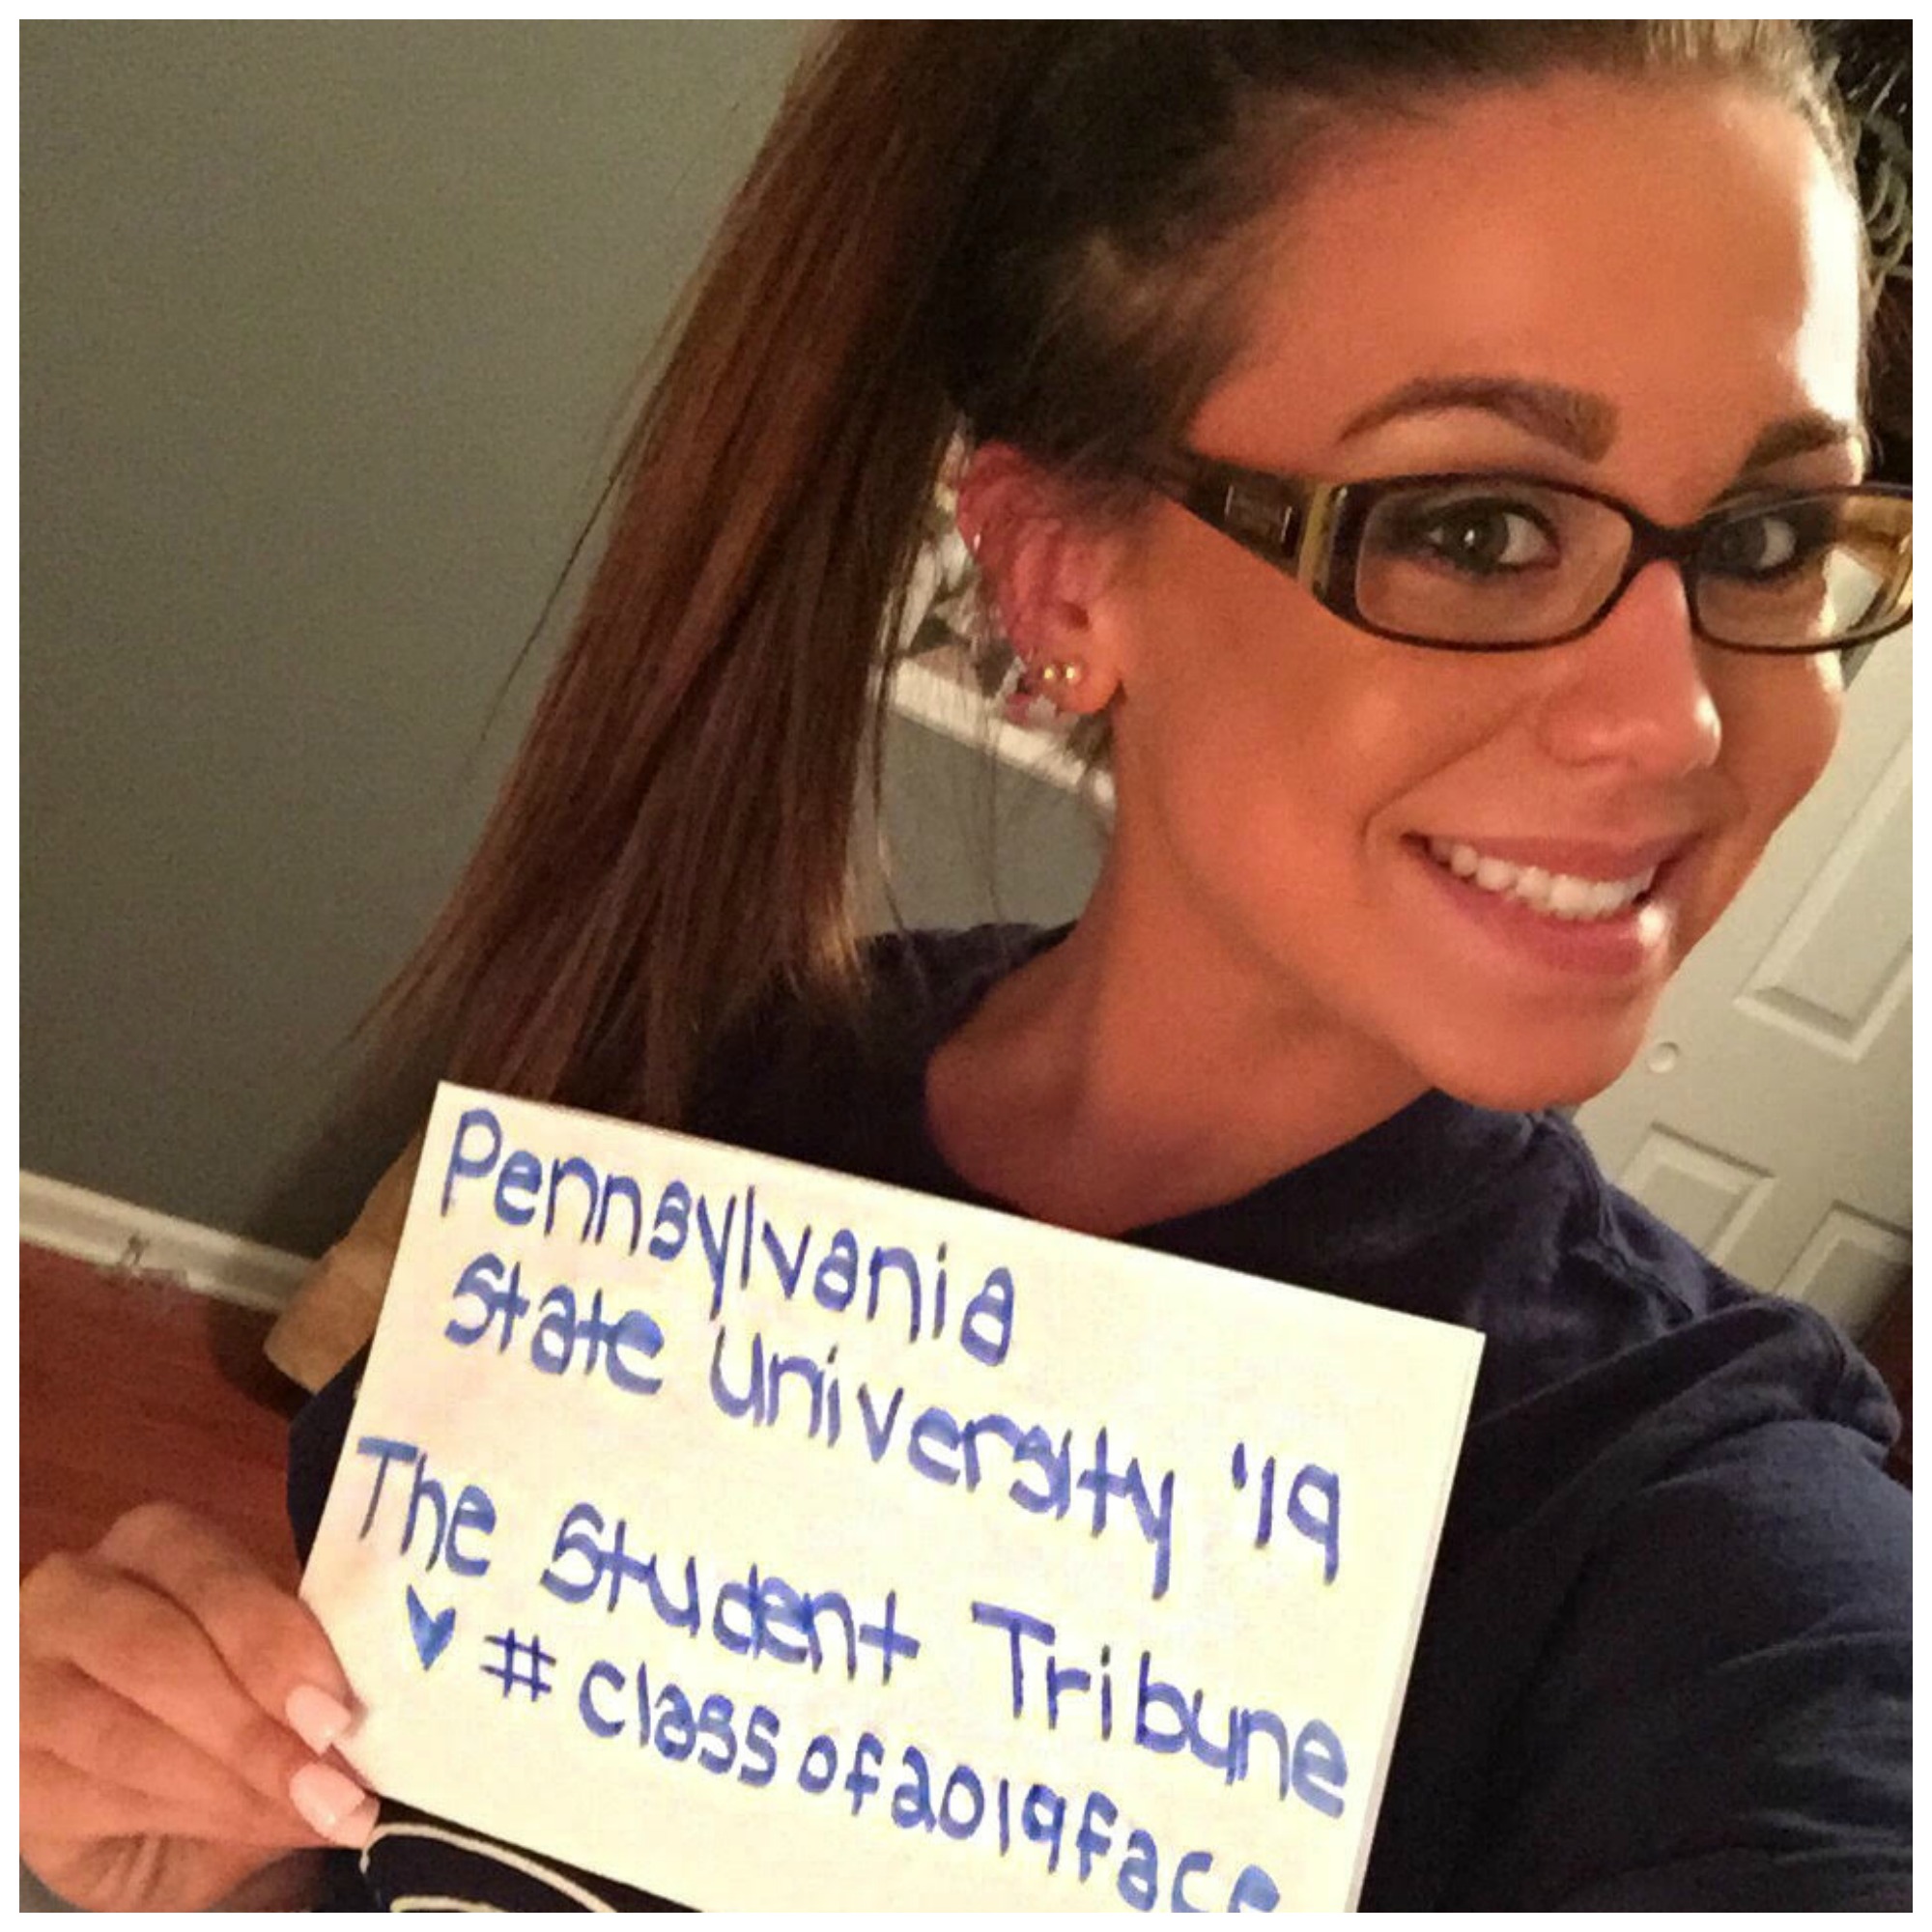 Pennsylvania
State University '19
The Student Tribune
♥ #classof2019face